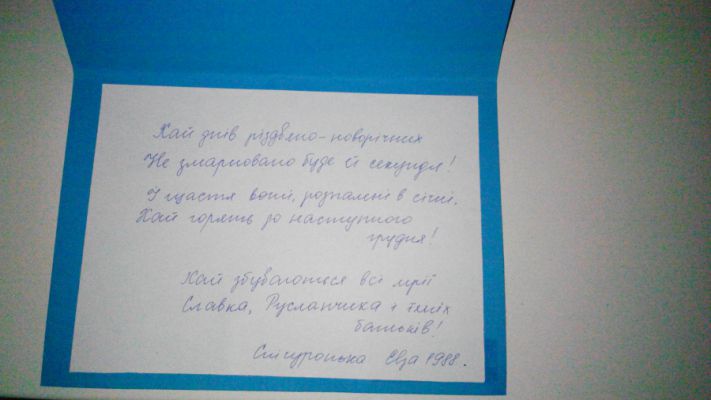 Хай днів різдвяно-новорічних
Не змарновано буде й секунди!
І щастя вогні, розпалені в січні,
Хай горять до наступного
грудня!
Хай збуваються всі мрії
Славка, Русланчика і їхніх
батьків!
Снігуронька Ева 1988.